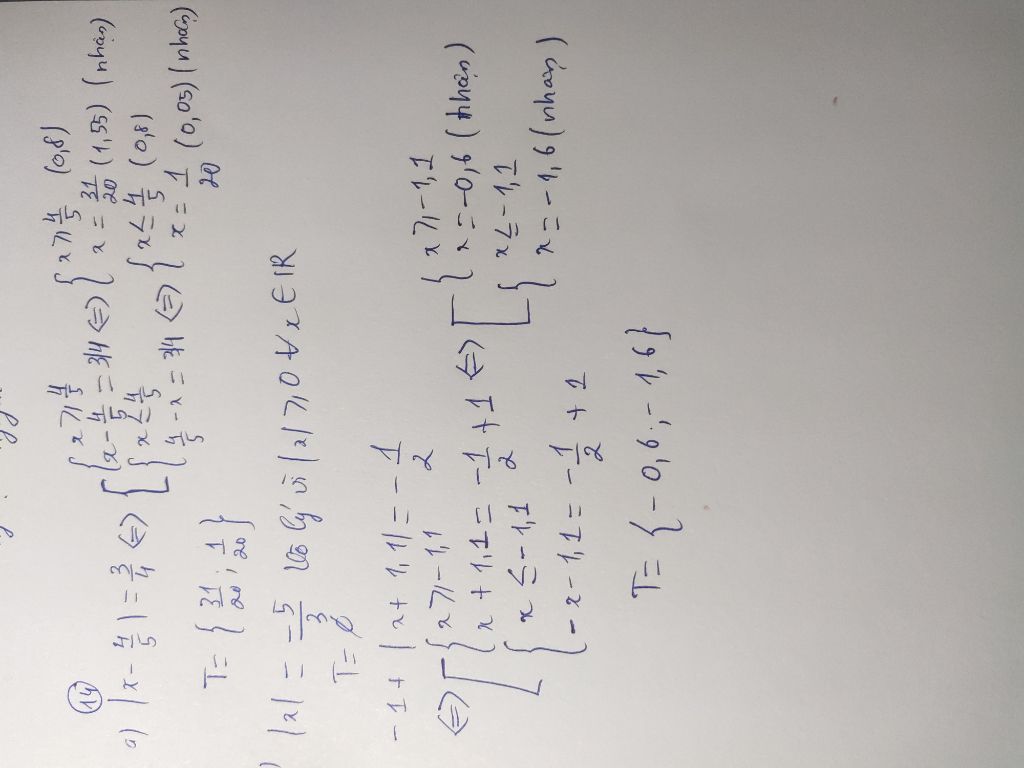 14
a) |x - 4/5| = 3/4 <=> [ { x ≥ 4/5 <=> { x ≥ 4/5 (0,8)
x - 4/5 = 3/4 <=> { x = 31/20 (1,55) (nhận)
{ x ≤ 4/5 { x ≤ 4/5 (0,8)
4/5 - x = 3/4 <=> { x = 1/20 (0,05) (nhận)
T = { 31/20 ; 1/20 }
) |x| = -5/3 Vô lý vì |x| ≥ 0 ∀ x ∈ IR
T = ∅
-1 + |x + 1,1| = -1/2
<=> [ { x ≥ -1,1 { x ≥ -1,1
x + 1,1 = -1/2 + 1 <=> [ { x = -0,6 (nhận)
{ x ≤ -1,1 { x ≤ -1,1
-x - 1,1 = -1/2 + 1 { x = -1,6 (nhận)
T = { -0,6 ; -1,6 }